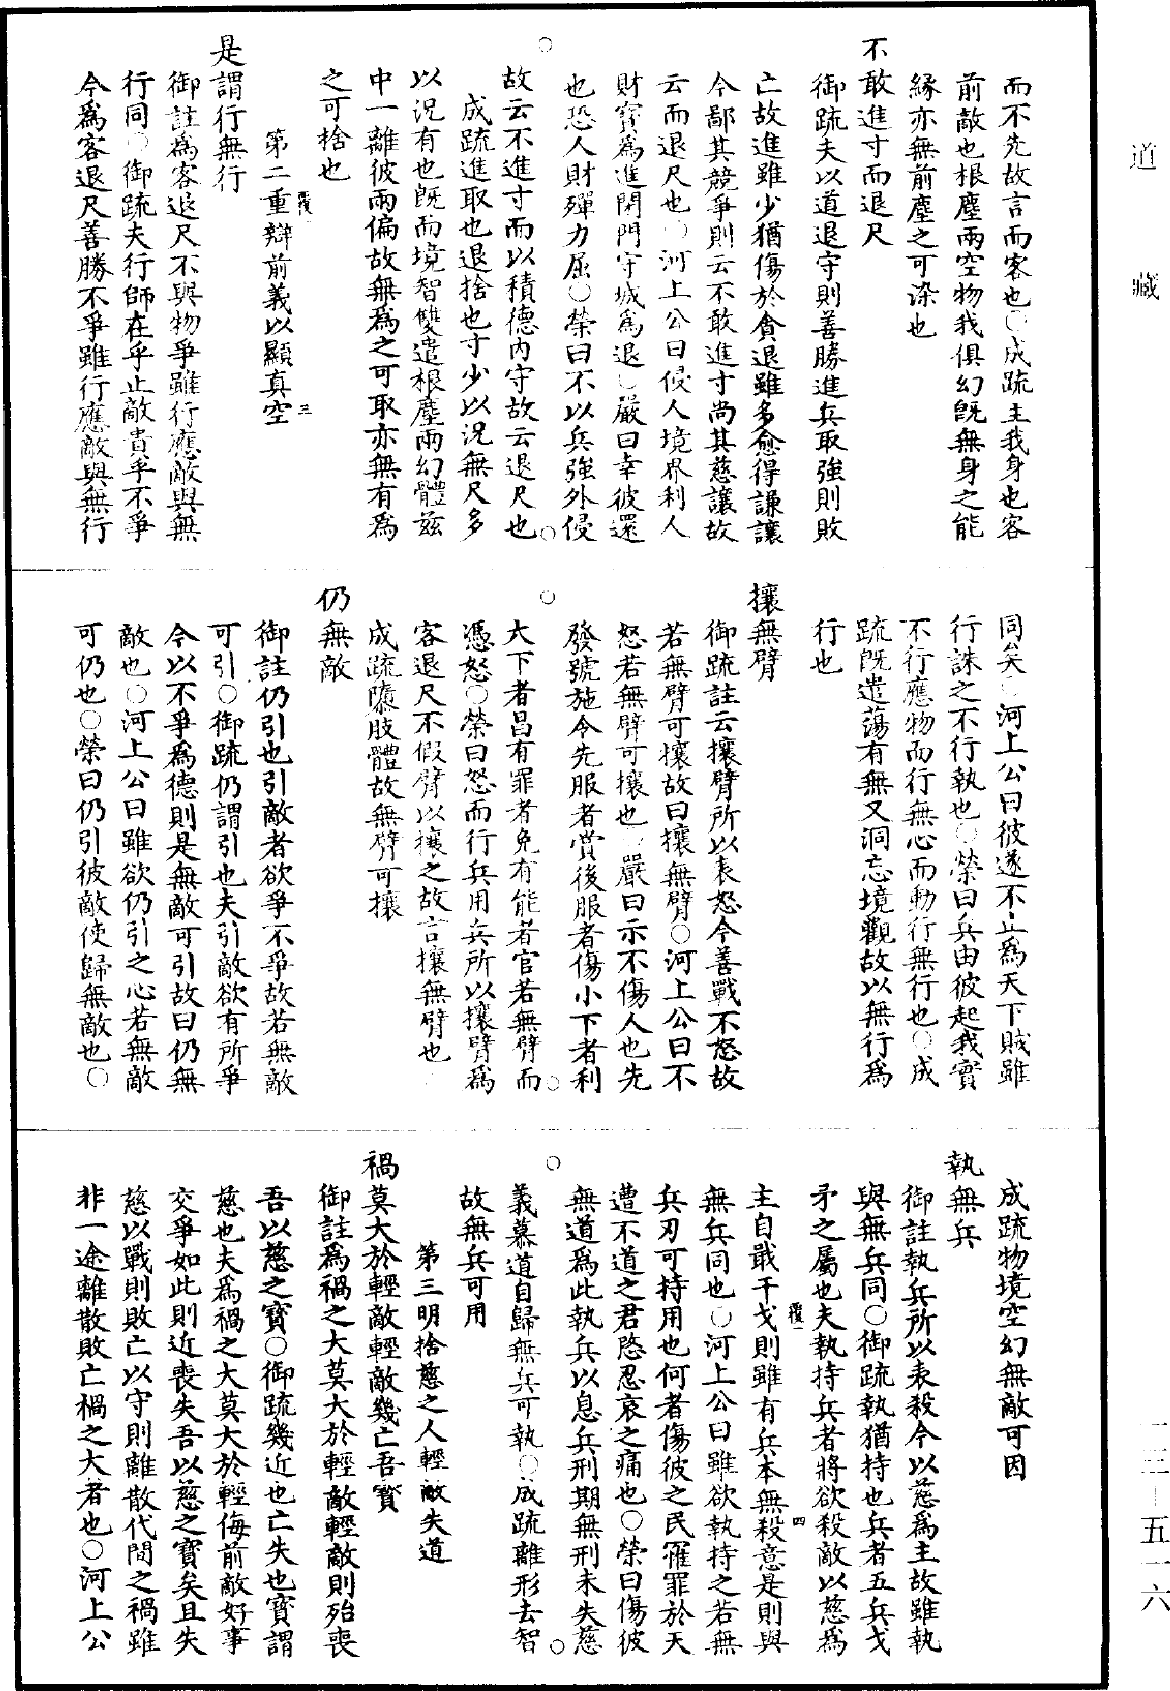 而不先故言而客也○成疏主我身也客
前敵也根塵兩空物我俱幻旣無身之能
緣亦無前塵之可染也
不敢進寸而退尺
御疏夫以道退守則善勝進兵取強則敗
亡故進雖少猶傷於貪退雖多愈得謙讓
今鄙其競爭則云不敢進寸尚其慈讓故
云而退尺也○河上公曰侵人境界利人
財寶爲進閉門守城爲退○嚴曰幸彼還
也恐人財殫力屈○榮曰不以兵強外侵
故云不進寸而以積德內守故云退尺也
成疏進取也退捨也寸少以況無尺多
以況有也旣而境智雙遣根塵兩幻體茲
中一離彼兩偏故無爲之可取亦無有爲
之可捨也
第二重辯前義以顯真空
是謂行無行
御註爲客退尺不與物爭雖行應敵與無
行同○御疏夫行師在乎止敵貴乎不爭
今爲客退尺善勝不爭雖行應敵與無行
同矣○河上公曰彼遂不止爲天下賊雖
行誅之不行執也○榮曰兵由彼起我實
不行應物而行無心而動行無行也○成
疏旣遣蕩有無又洞忘境觀故以無行爲
行也
攘無臂
御疏註云攘臂所以表怒今善戰不怒故
若無臂可攘故曰攘無臂○河上公曰不
怒若無臂可攘也○嚴曰示不傷人也先
發號施令先服者賞後服者傷小下者利
大下者昌有罪者免有能者官若無臂而
憑怒○榮曰怒而行兵用兵所以攘臂爲
客退尺不假臂以攘之故言攘無臂也○
成疏隳肢體故無臂可攘
仍無敵
御註仍引也引敵者欲爭不爭故若無敵
可引○御疏仍謂引也夫引敵欲有所爭
今以不爭爲德則是無敵可引故曰仍無
敵也○河上公曰雖欲仍引之心若無敵
可仍也○榮曰仍引彼敵使歸無敵也○
成疏物境空幻無敵可因
執無兵
御註執兵所以表殺今以慈爲主故雖執
與無兵同○御疏執猶持也兵者五兵戈
矛之屬也夫執持兵者將欲殺敵以慈爲
主自戢干戈則雖有兵本無殺意是則與
無兵同也○河上公曰雖欲執持之若無
兵刃可持用也何者傷彼之民罹罪於天
遭不道之君愍忍哀之痛也○榮曰傷彼
無道爲此執兵以息兵刑期無刑未失慈
義慕道自歸無兵可執○成疏離形去智
故無兵可用
第三明捨慈之人輕敵失道
禍莫大於輕敵輕敵幾亡吾寳
御註爲禍之大莫大於輕敵輕敵則殆喪
吾以慈之寶○御疏幾近也亡失也寶謂
慈也夫爲禍之大莫大於輕侮前敵好事
交爭如此則近喪失吾以慈之寶矣且失
慈以戰則敗亡以守則離散代間之禍雖
非一途離散敗亡禍之大者也○河上公
道
藏
一三-五一六